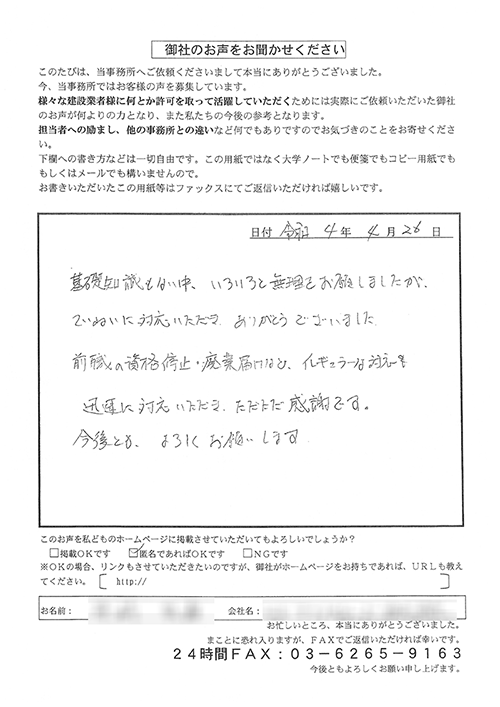 御社のお声をお聞かせください
このたびは、当事務所へご依頼くださいまして本当にありがとうございました。
今、当事務所ではお客様の声を募集しています。
様々な建設業者様に何とか許可を取って活躍していただくためには実際にご依頼いただいた御社
のお声が何よりの力となり、また私たちの今後の参考となります。
担当者への励まし、他の事務所との違いなど何でもありですのでお気づきのことをお寄せくださ
い。
下欄への書き方などは一切自由です。この用紙ではなく大学ノートでも便箋でもコピー用紙でも
もしくはメールでも構いませんので。
お書きいただいたこの用紙等はファックスにてご返信いただければ嬉しいです。
日付 令和 4 年 4 月 26 日
基礎知識もない中、いろいろと無理をお願しましたが、
ていねいに対応いただき、ありがとうございました
前職の資格停止・廃業届けなど、イレギュラーな対応も
迅速に対応いただき、ただただ感謝です。
今後とも、よろしくお願いします
このお声を私どものホームページに掲載させていただいてもよろしいでしょうか？
□掲載OKです ☑匿名であればOKです □NGです
※OKの場合、リンクもさせていただきたいのですが、御社がホームページをお持ちであれば、URLも教え
てください。 [ http:// ]
お名前： 会社名：
お忙しいところ、本当にありがとうございました。
まことに恐れ入りますが、FAXでご返信いただければ幸いです。
24時間FAX：03-6265-9163
今後ともよろしくお願い申し上げます。